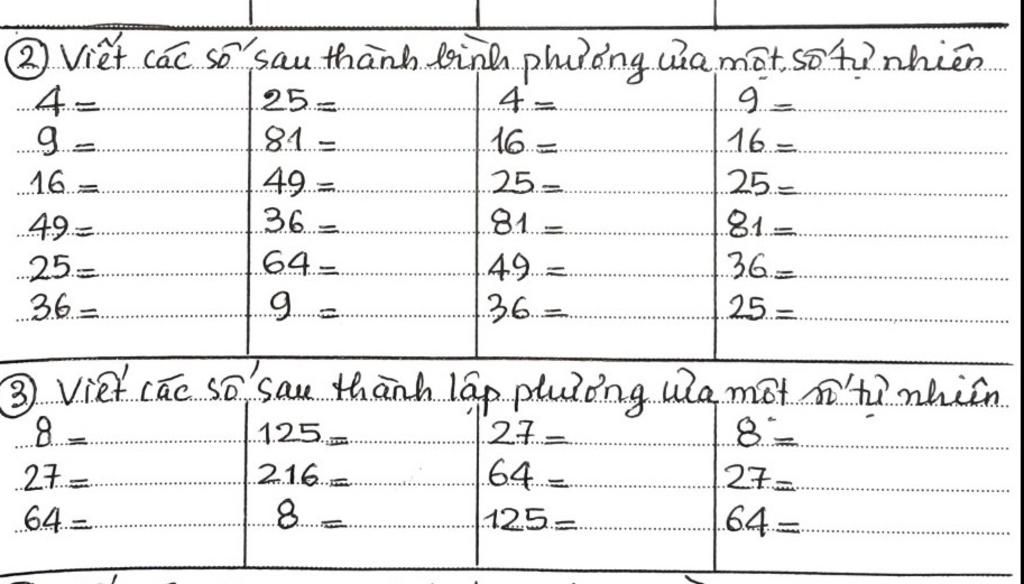 ② Viết các số sau thành bình phương của một số tự nhiên
4 = 25 = 4 = 9 =
9 = 81 = 16 = 16 =
16 = 49 = 25 = 25 =
49 = 36 = 81 = 81 =
25 = 64 = 49 = 36 =
36 = 9 = 36 = 25 =
③ Viết các số sau thành lập phương của một số tự nhiên
8 = 125 = 27 = 8 =
27 = 216 = 64 = 27 =
64 = 8 = 125 = 64 =